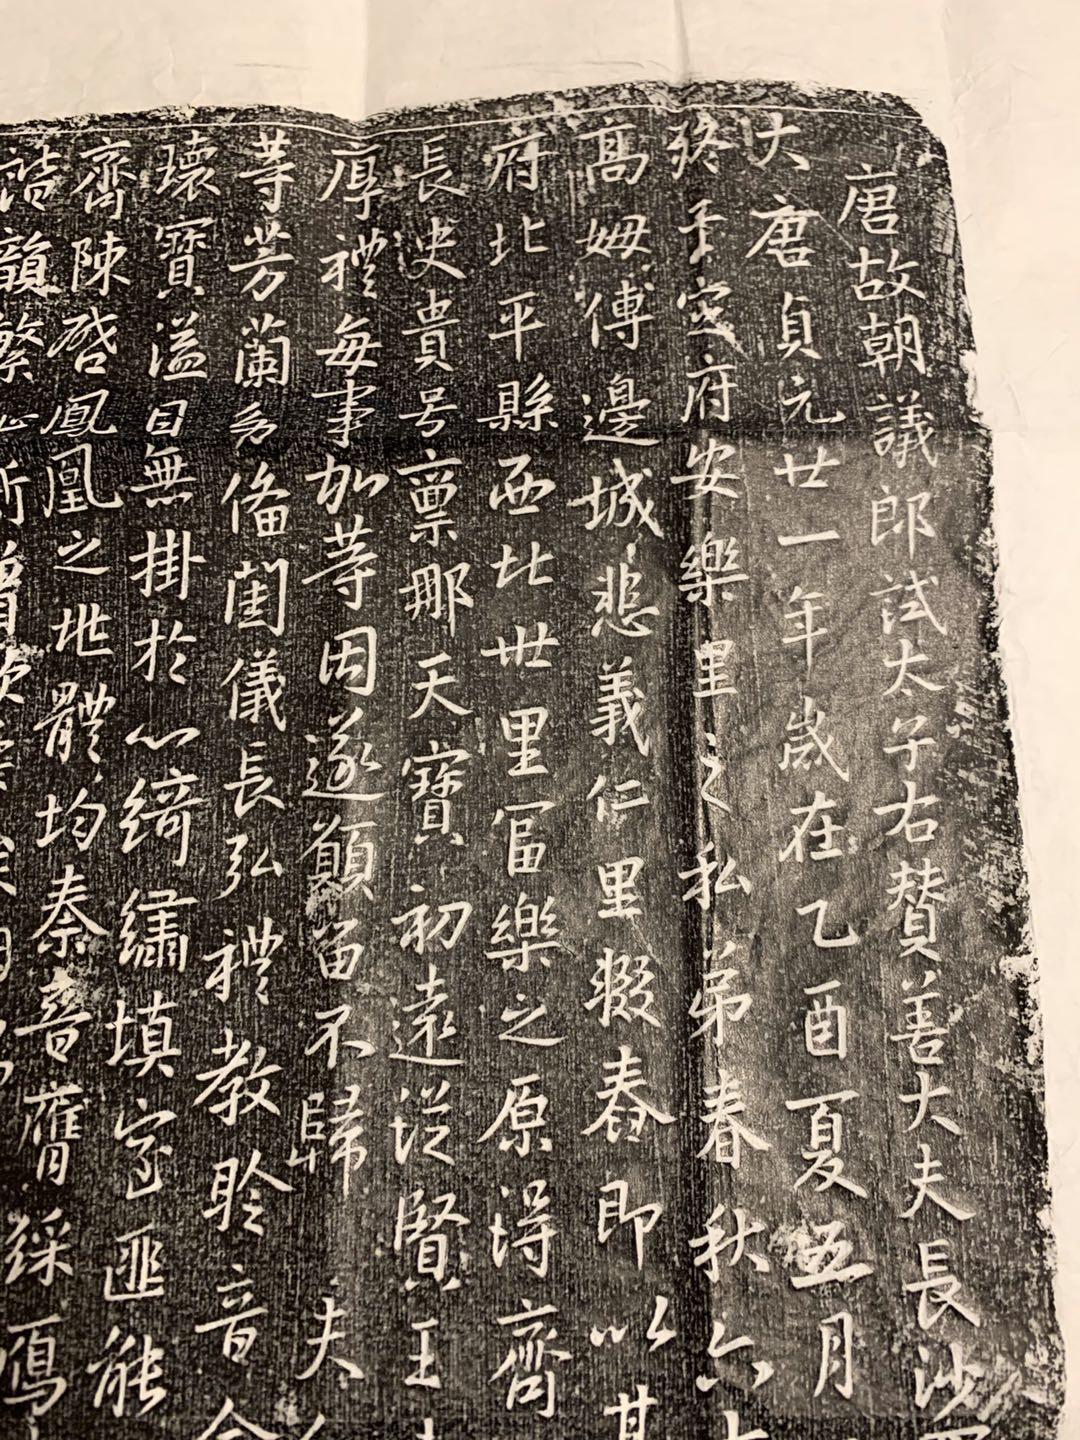 唐故朝議郎試太子右贊善大夫長沙
大唐貞元廿一年歲在乙酉夏五月
終于定府安樂里之私第春秋六
高姆傅邊城悲義仁里輟舂即以其
府北平縣西北世里富樂之原得齊
長史貴号稟那天寶初遠從賢王
厚禮每事加等因遂願留不歸 夫
等芳蘭備閨儀長弘禮教聆音
瓌寶溢目無掛於心綺繡填室匪能
齊陳啓鳳凰之兆體均秦晉膺綵鴈
諧韻繁